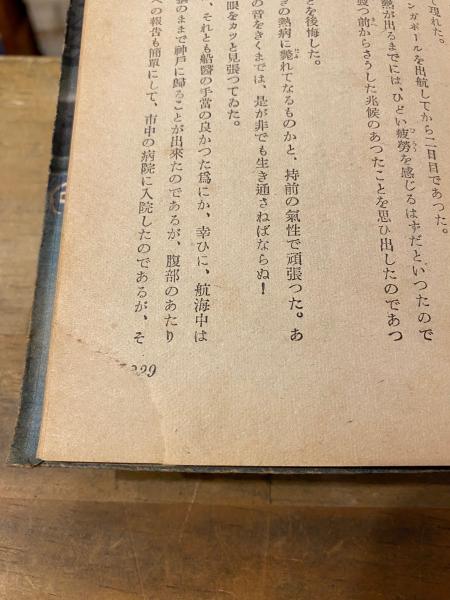 現れた。
ンガポールを出航してから二日目であつた。
熱が出るまでには、ひどい疲勞を感じるはずだといつたので
發つ前からさうした兆候のあつたことを思ひ出したのであつ
とを後悔した。
の熱病に斃れてなるものかと、持前の氣性で頑張つた。あ
の音をきくまでは、是が非でも生き通さねばならぬ！
眼をカッと見張つてゐた。
、それとも船醫の手當の良かつた爲にか、幸ひに、航海中は
のままで神戸に歸ることが出來たのであるが、腹部のあたり
への報告も簡單にして、市中の病院に入院したのであるが、そ